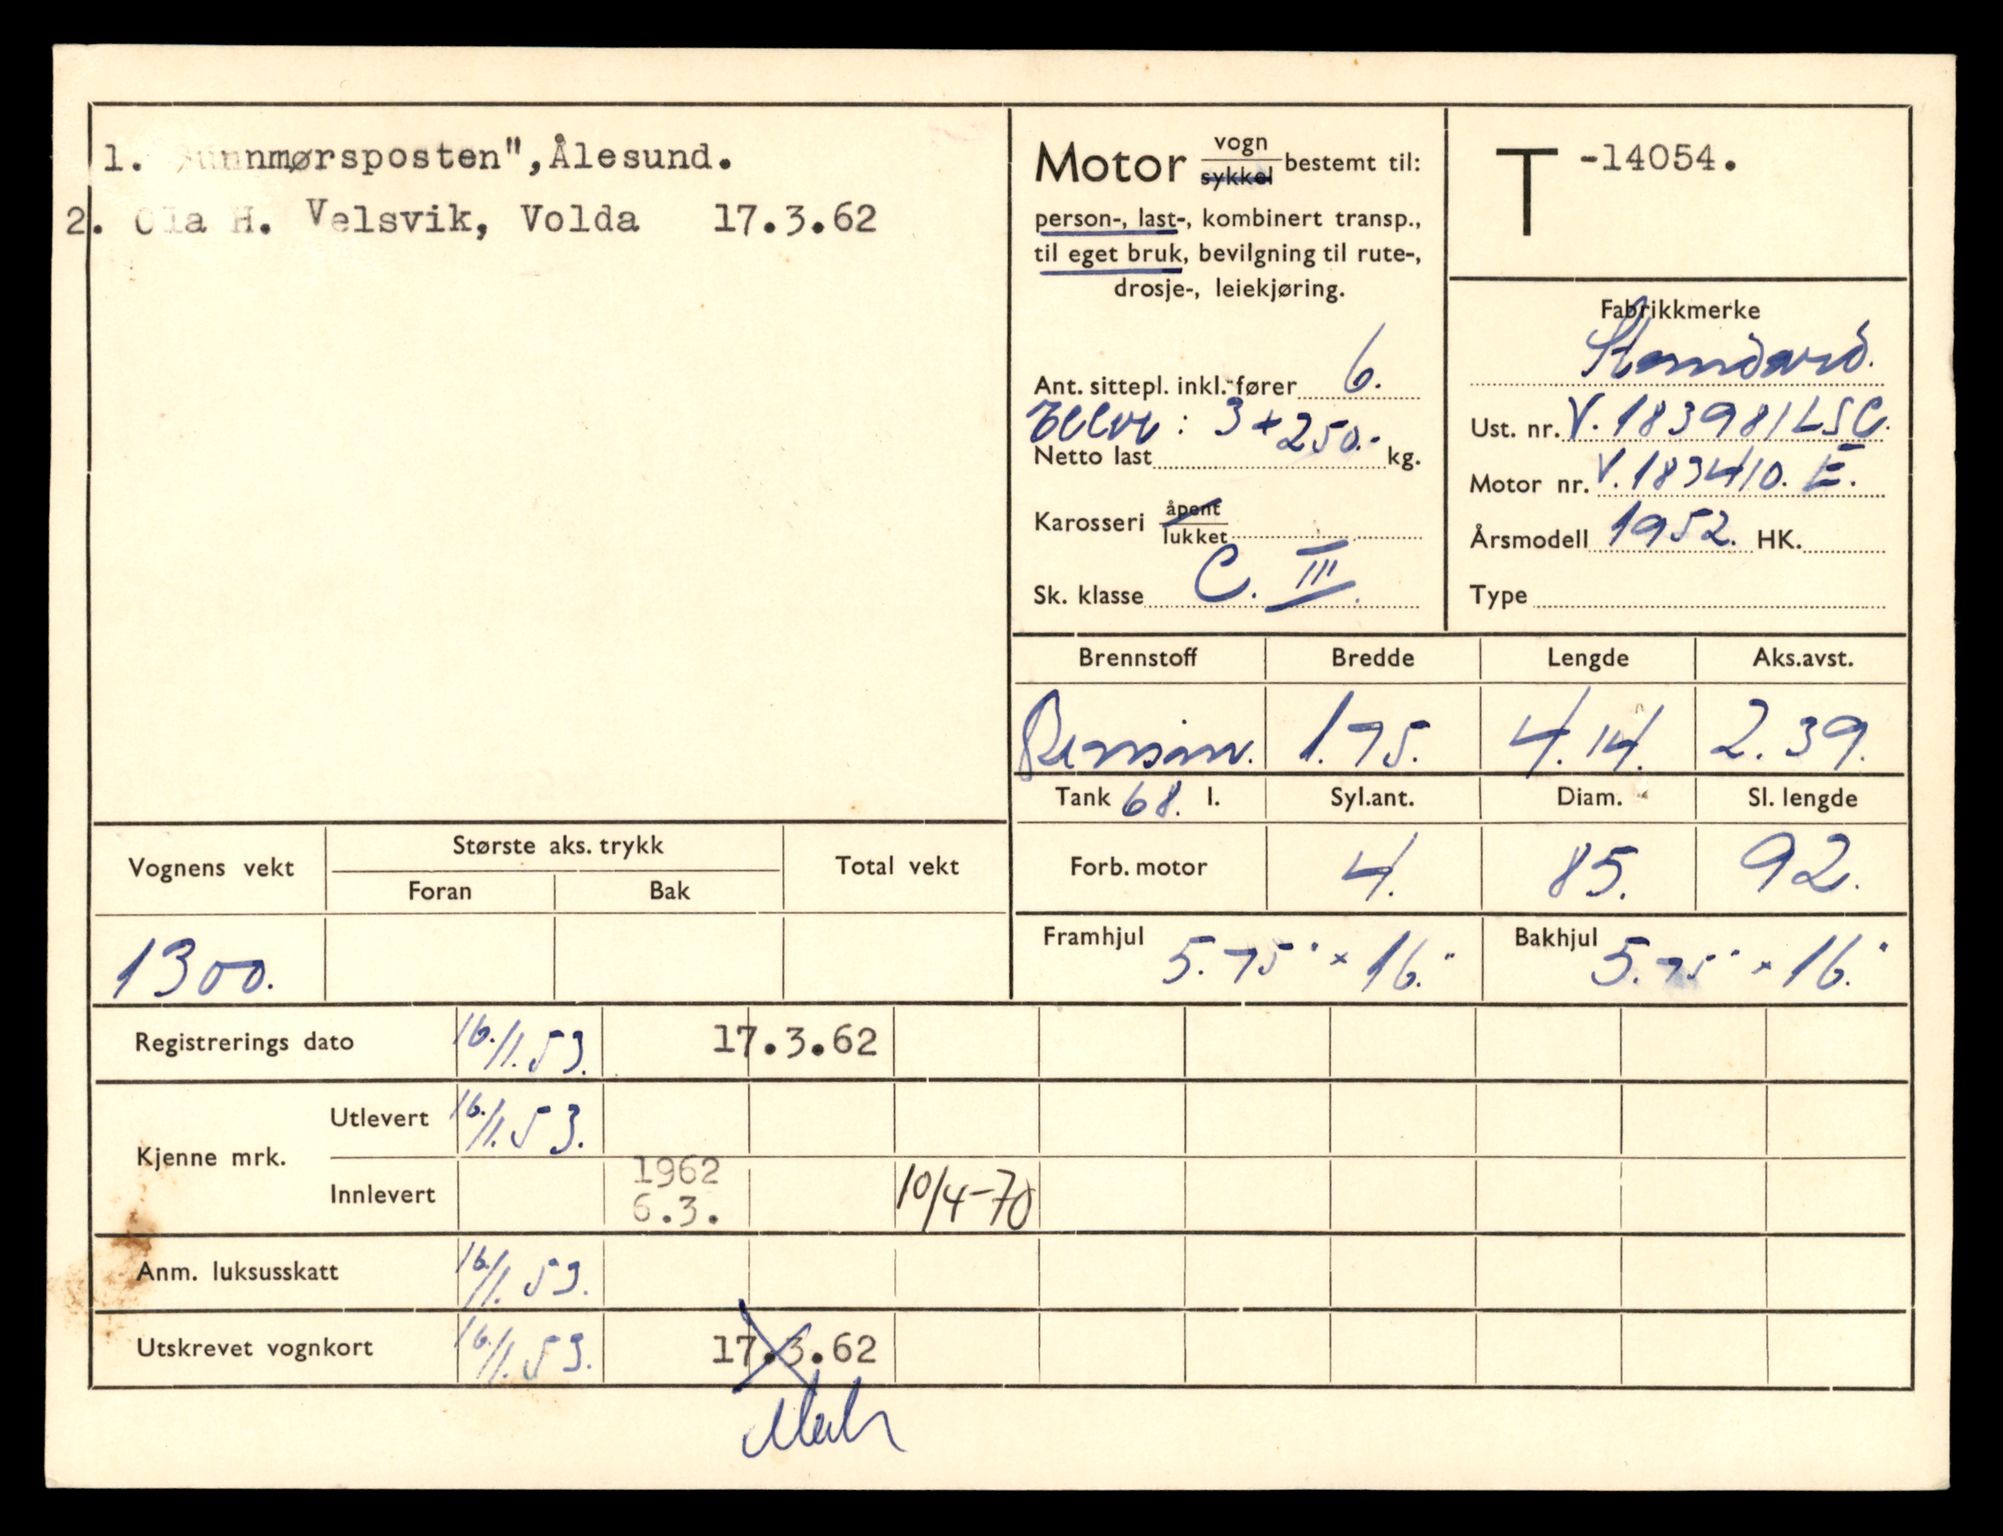 1. "Sunnmørsposten", Ålesund.
2. Ola H. Velsvik, Volda 17.3.62
Motor vogn sykkel bestemt til:
person-, last-, kombinert transp.,
til eget bruk, bevilgning til rute-,
drosje-, leiekjøring.
Ant. sittepl. inkl. fører 6.
: 3+250.-
Netto last kg.
Karosseri åpent lukket
Sk. klasse C. III.
T -14054.
Fabrikkmerke
Standard.
Ust. nr. V.183981LSC.
Motor nr. V.183410. E.
Årsmodell 1952. HK.
Type
Brennstoff Bredde Lengde Aks.avst.
Bensin. 1.75. 4.14. 2.39.
Tank 68. l. Syl.ant. Diam. Sl. lengde
Forb. motor 4. 85. 92.
Framhjul 5.75" x 16." Bakhjul 5.75" x 16."
Vognens vekt Største aks. trykk Total vekt
Foran Bak
1300.
Registrerings dato 16./1.53. 17.3.62
Kjenne mrk.
Utlevert 16./1.53.
Innlevert 1962 6.3. 10/4-70
Anm. luksusskatt 16./1.53.
Utskrevet vognkort 16./1.53. 17.3.62